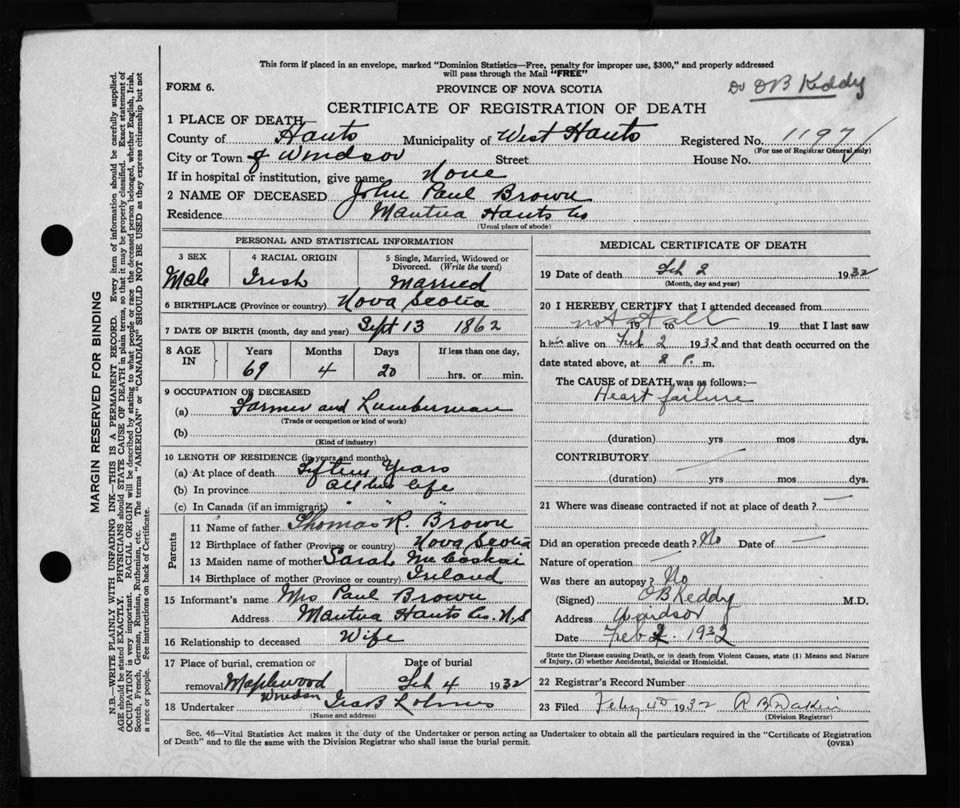 This form if placed in an envelope, marked "Dominion Statistics—Free, penalty for improper use, $300," and properly addressed
will pass through the Mail "FREE"
FORM 6.
PROVINCE OF NOVA SCOTIA
Dr OB Keddy
CERTIFICATE OF REGISTRATION OF DEATH
1 PLACE OF DEATH
County of Hants Municipality of West Hants Registered No. 1197
(For use of Registrar General only)
City or Town of Windsor Street House No.
If in hospital or institution, give name None
2 NAME OF DECEASED John Paul Brown
Residence Mantua Hants Co
(Usual place of abode)
PERSONAL AND STATISTICAL INFORMATION
3 SEX 4 RACIAL ORIGIN 5 Single, Married, Widowed or
Divorced. (Write the word)
Male Irish Married
6 BIRTHPLACE (Province or country) Nova Scotia
7 DATE OF BIRTH (month, day and year) Sept 13 1862
8 AGE IN Years Months Days If less than one day,
69 4 20 hrs. or min.
9 OCCUPATION OF DECEASED
(a) Farmer and Lumberman
(Trade or occupation or kind of work)
(b)
(Kind of industry)
10 LENGTH OF RESIDENCE (in years and months)
(a) At place of death Fifteen Years
(b) In province All his life
(c) In Canada (if an immigrant) " " "
Parents
11 Name of father Thomas R. Brown
12 Birthplace of father (Province or country) Nova Scotia
13 Maiden name of mother Sarah
14 Birthplace of mother (Province or country) Ireland
15 Informant's name Mrs Paul Brown
Address Mantua Hants Co. N.S
16 Relationship to deceased Wife
17 Place of burial, cremation or Date of burial
removal Maplewood Feb 4 1932
Windsor
18 Undertaker
(Name and address)
MEDICAL CERTIFICATE OF DEATH
19 Date of death Feb 2 1932
(Month, day and year)
20 I HEREBY CERTIFY that I attended deceased from
not at all 19 to 19 that I last saw
him alive on Feb 2 1932 and that death occurred on the
date stated above, at 2 P. m.
The CAUSE of DEATH was as follows:
Heart failure
(duration) yrs mos dys.
CONTRIBUTORY
(duration) yrs mos dys.
21 Where was disease contracted if not at place of death? —
Did an operation precede death? No Date of —
Nature of operation —
Was there an autopsy? No
(Signed) OB Keddy M.D.
Address Windsor
Date Feb 2. 1932
State the Disease causing Death, or in death from Violent Causes, state (1) Means and Nature
of Injury, (2) whether Accidental, Suicidal or Homicidal.
22 Registrar's Record Number
23 Filed Feby 1932
(Division Registrar)
Sec. 46—Vital Statistics Act makes it the duty of the Undertaker or person acting as Undertaker to obtain all the particulars required in the "Certificate of Registration
of Death" and to file the same with the Division Registrar who shall issue the burial permit. (OVER)
MARGIN RESERVED FOR BINDING
N.B.—WRITE PLAINLY WITH UNFADING INK—THIS IS A PERMANENT RECORD. Every item of information should be carefully supplied.
AGE should be stated EXACTLY. PHYSICIANS should STATE CAUSE OF DEATH in plain terms, so that it may be properly classified. Exact statement of
OCCUPATION is very important. RACIAL ORIGIN will be described by stating to what people or race the deceased person belonged, whether English, Irish,
Scotch, French, German, Russian, Ruthenian, etc. The terms "AMERICAN" or "CANADIAN" SHOULD NOT BE USED as they express citizenship but not
a race or people. See instructions on back of Certificate.